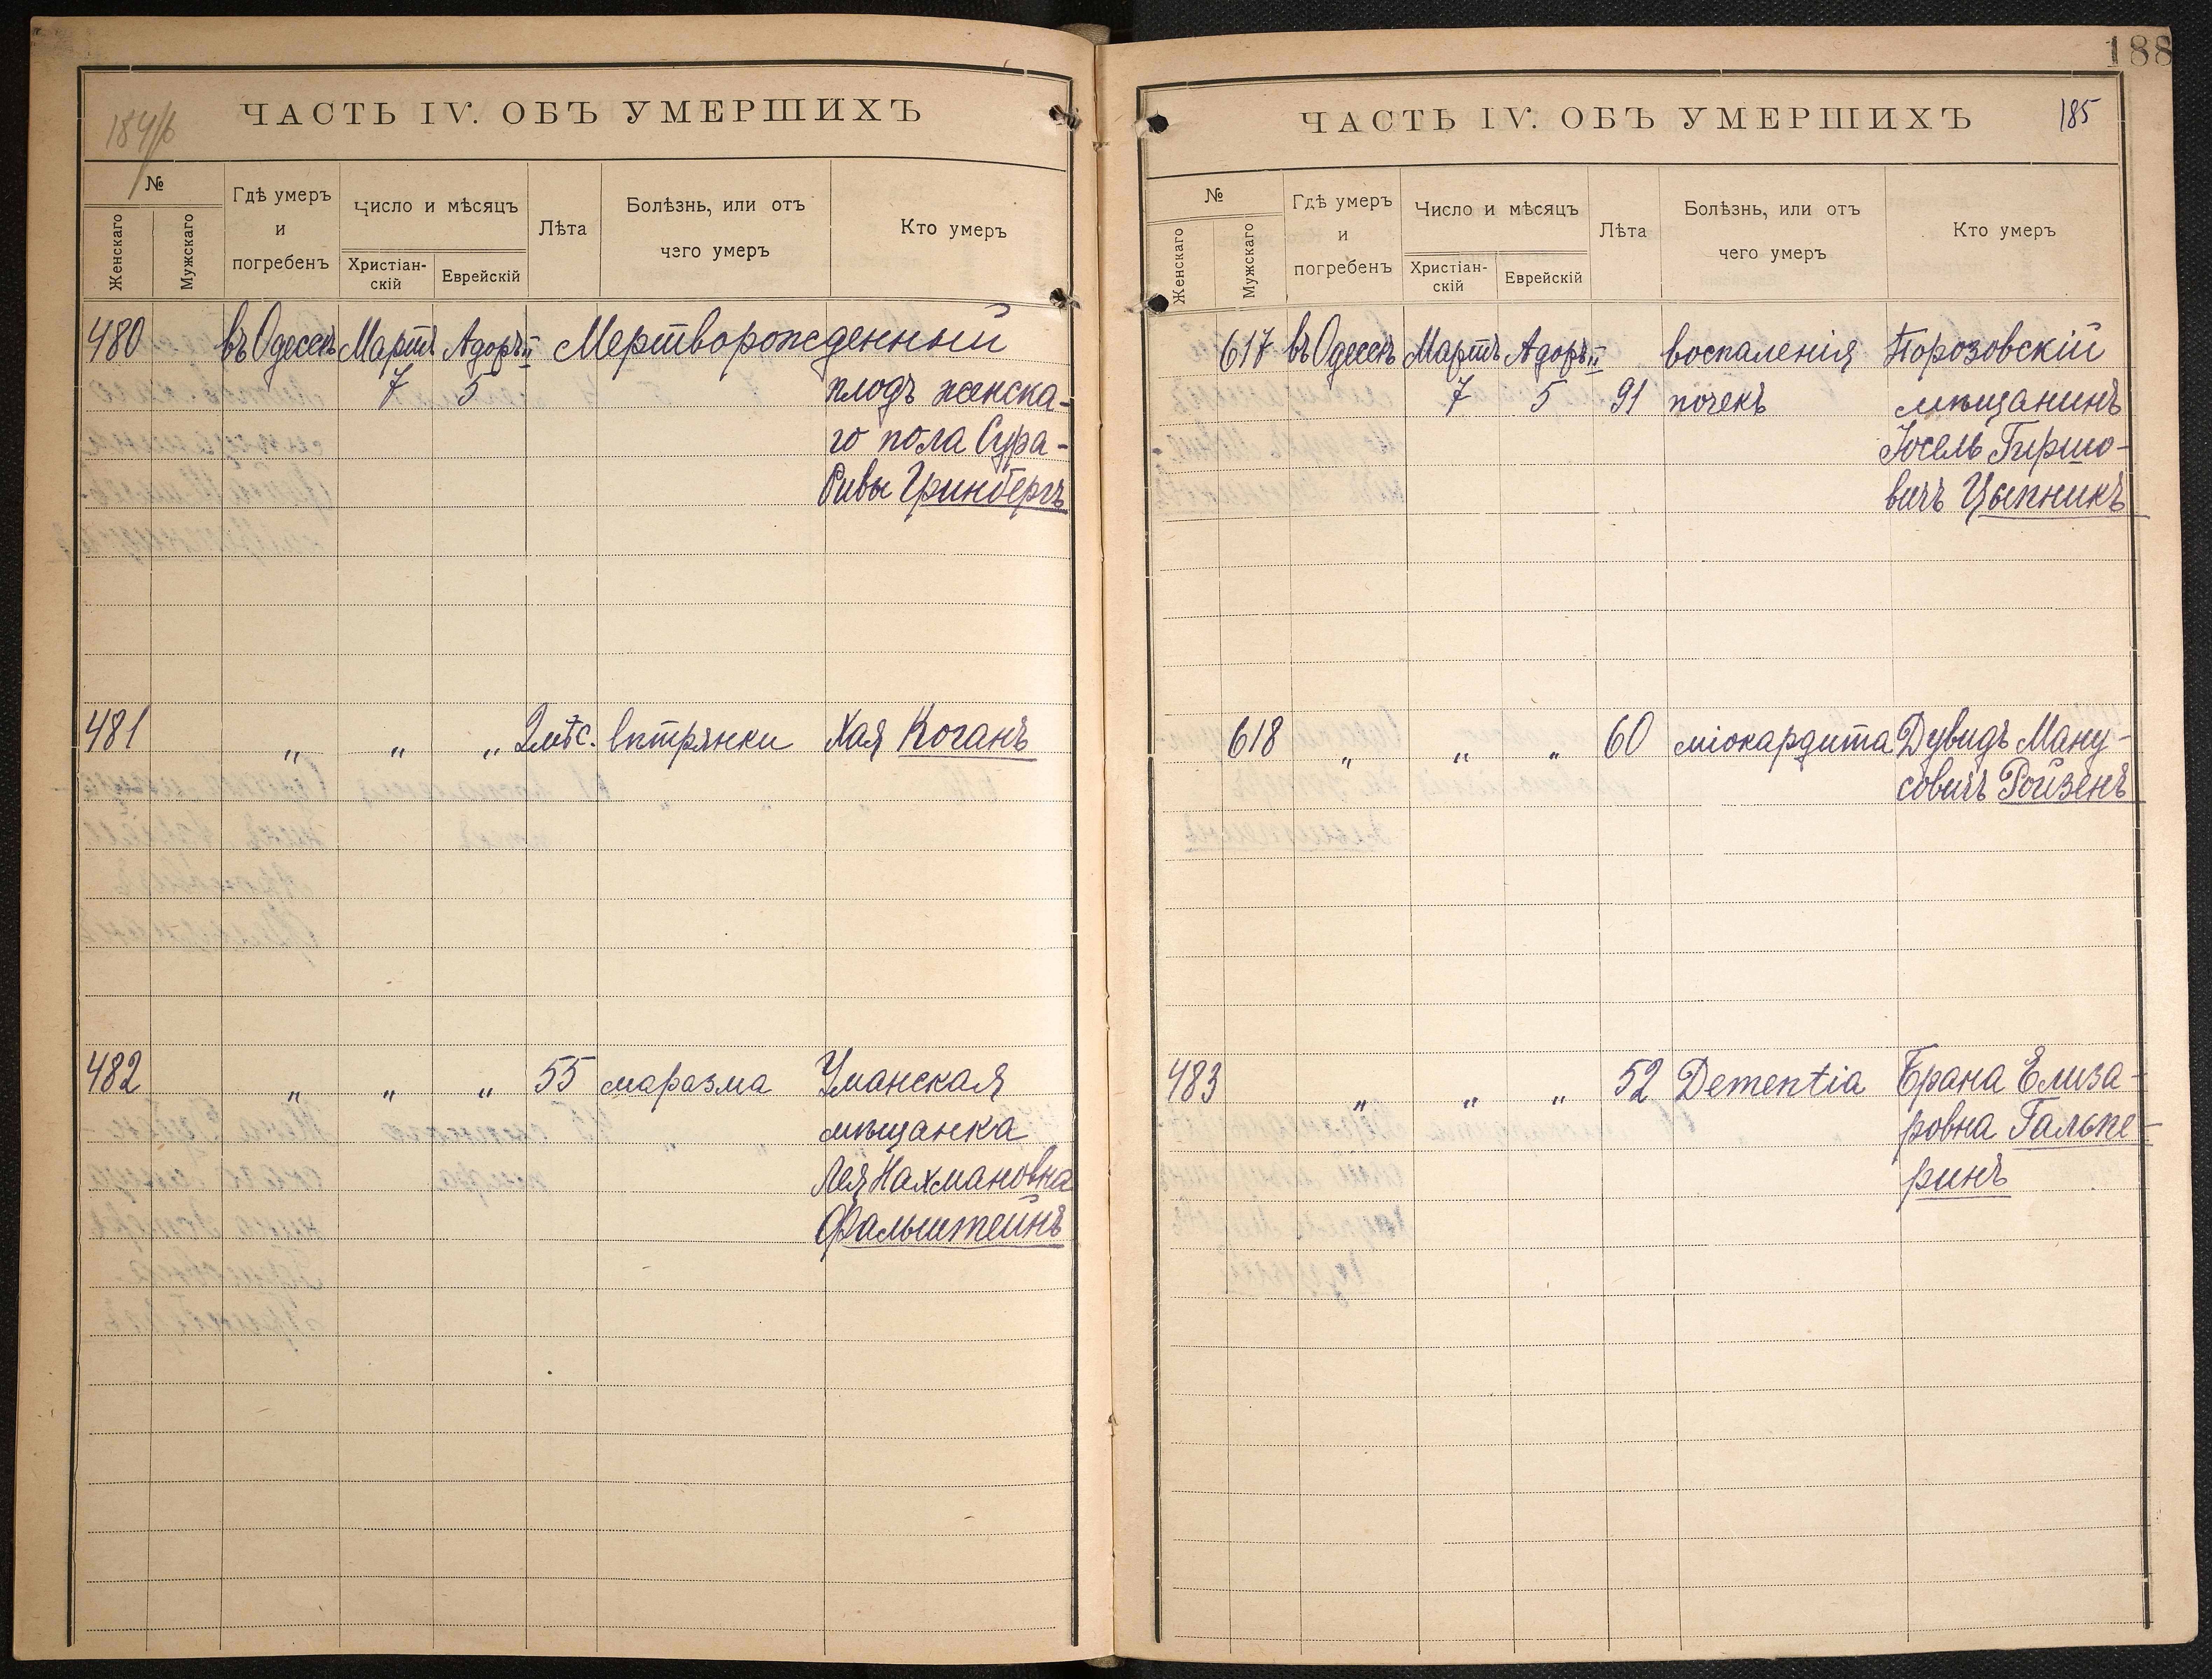 184/б
ЧАСТЬ IV. ОБЪ УМЕРШИХЪ
№
Женскаго
Мужскаго
Гдѣ умеръ
и
погребенъ
Число и мѣсяцъ
Христіан-
скій
Еврейскій
Лѣта
Болѣзнь, или отъ
чего умеръ
Кто умеръ
480 въ Одессѣ Мартъ Адоръ II Мертворожденный
7 5 плодъ женска-
го пола Сура-
Ривы Гринбергъ
481 " " " 2 мѣс. вѣтрянки Хая Коганъ
482 " " " 55 маразма Уманская
мѣщанка
Лея Нахмановна
Фальштейнъ
188
ЧАСТЬ IV. ОБЪ УМЕРШИХЪ 185
№
Женскаго
Мужскаго
Гдѣ умеръ
и
погребенъ
Число и мѣсяцъ
Христіан-
скій
Еврейскій
Лѣта
Болѣзнь, или отъ
чего умеръ
Кто умеръ
617 въ Одессѣ Мартъ Адоръ II воспаленія Порозовскій
7 5 91 почекъ мѣщанинъ
Іосель Гиршо-
вичъ Цыпникъ
618 " " " 60 міокардита Дувидъ Ману-
совичъ Ройзенъ
483 " " " 52 Dementia Брана Елиза-
ровна Гальпе-
ринъ